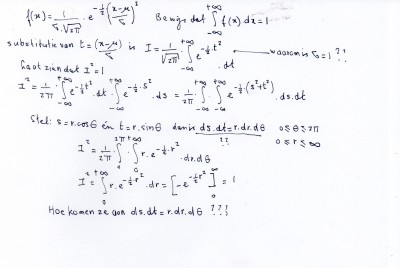 f(x) = 1/(σ.√2π) . e^(-½((x-μ)/σ)²)   Bewijs dat ∫_{-∞}^{+∞} f(x) dx = 1
substitutie van t = (x-μ)/σ is I = 1/√2π ∫_{-∞}^{+∞} e^(-½t²) .dt —— waarom is σ=1 ?!
Laat zien dat I² = 1
I² = 1/2π . ∫_{-∞}^{+∞} e^(-½t²) .dt . ∫_{-∞}^{+∞} e^(-½.s²) .ds = 1/2π . ∫_{-∞}^{+∞} ∫_{-∞}^{+∞} e^(-½(s²+t²)) .ds.dt
Stel: s = r.cosθ én t = r.sinθ dan is ds.dt = r.dr.dθ   0 ≤ θ ≤ 2π
?? 0 ≤ r ≤ ∞
I² = 1/2π . ∫ ∫ r.e^(-½.r²) .dr.dθ
I² = ∫_{0}^{+∞} r.e^(-½r²) .dr = [-e^(-½r²)]_{0}^{∞} = 1
Hoe komen ze aan ds.dt = r.dr.dθ ???